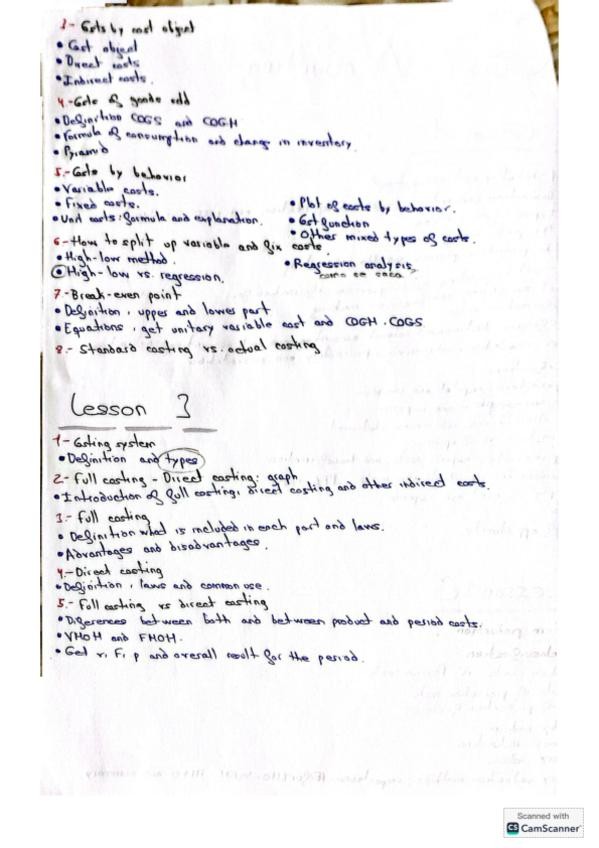 3- Costs by cost object
• Cost object
• Direct costs
• Indirect costs.
4.- Cost of goods sold
• Definition COGS and COGM
• Formula of consumption and change in inventory.
• Pyramid
5.- Costs by behavior
• Variable costs.
• Fixed costs.
• Unit costs: formula and explanation.
• Plot of costs by behavior.
• Cost function
• Other mixed types of costs.
6- How to split up variable and fix costs.
• High-low method.
• High-low vs. regression.
• Regression analysis
como se saca
7.- Break-even point
• Definition, upper and lower part
• Equations, get unitary variable cost and COGM, COGS
8.- Standard costing vs. actual costing
Lesson 3
1- Costing system
• Definition and types
2.- Full costing - Direct costing: graph
• Introduction of full costing, direct costing and other indirect costs.
3.- Full costing
• Definition what is included in each part and laws.
• Advantages and disadvantages.
4.- Direct costing
• Definition, laws and common use.
5.- Full costing vs direct costing
• Diferences between both and between product and period costs.
• VMOH and FMOH.
• Get v, F, p and overall result for the period.
Scanned with
CS CamScanner